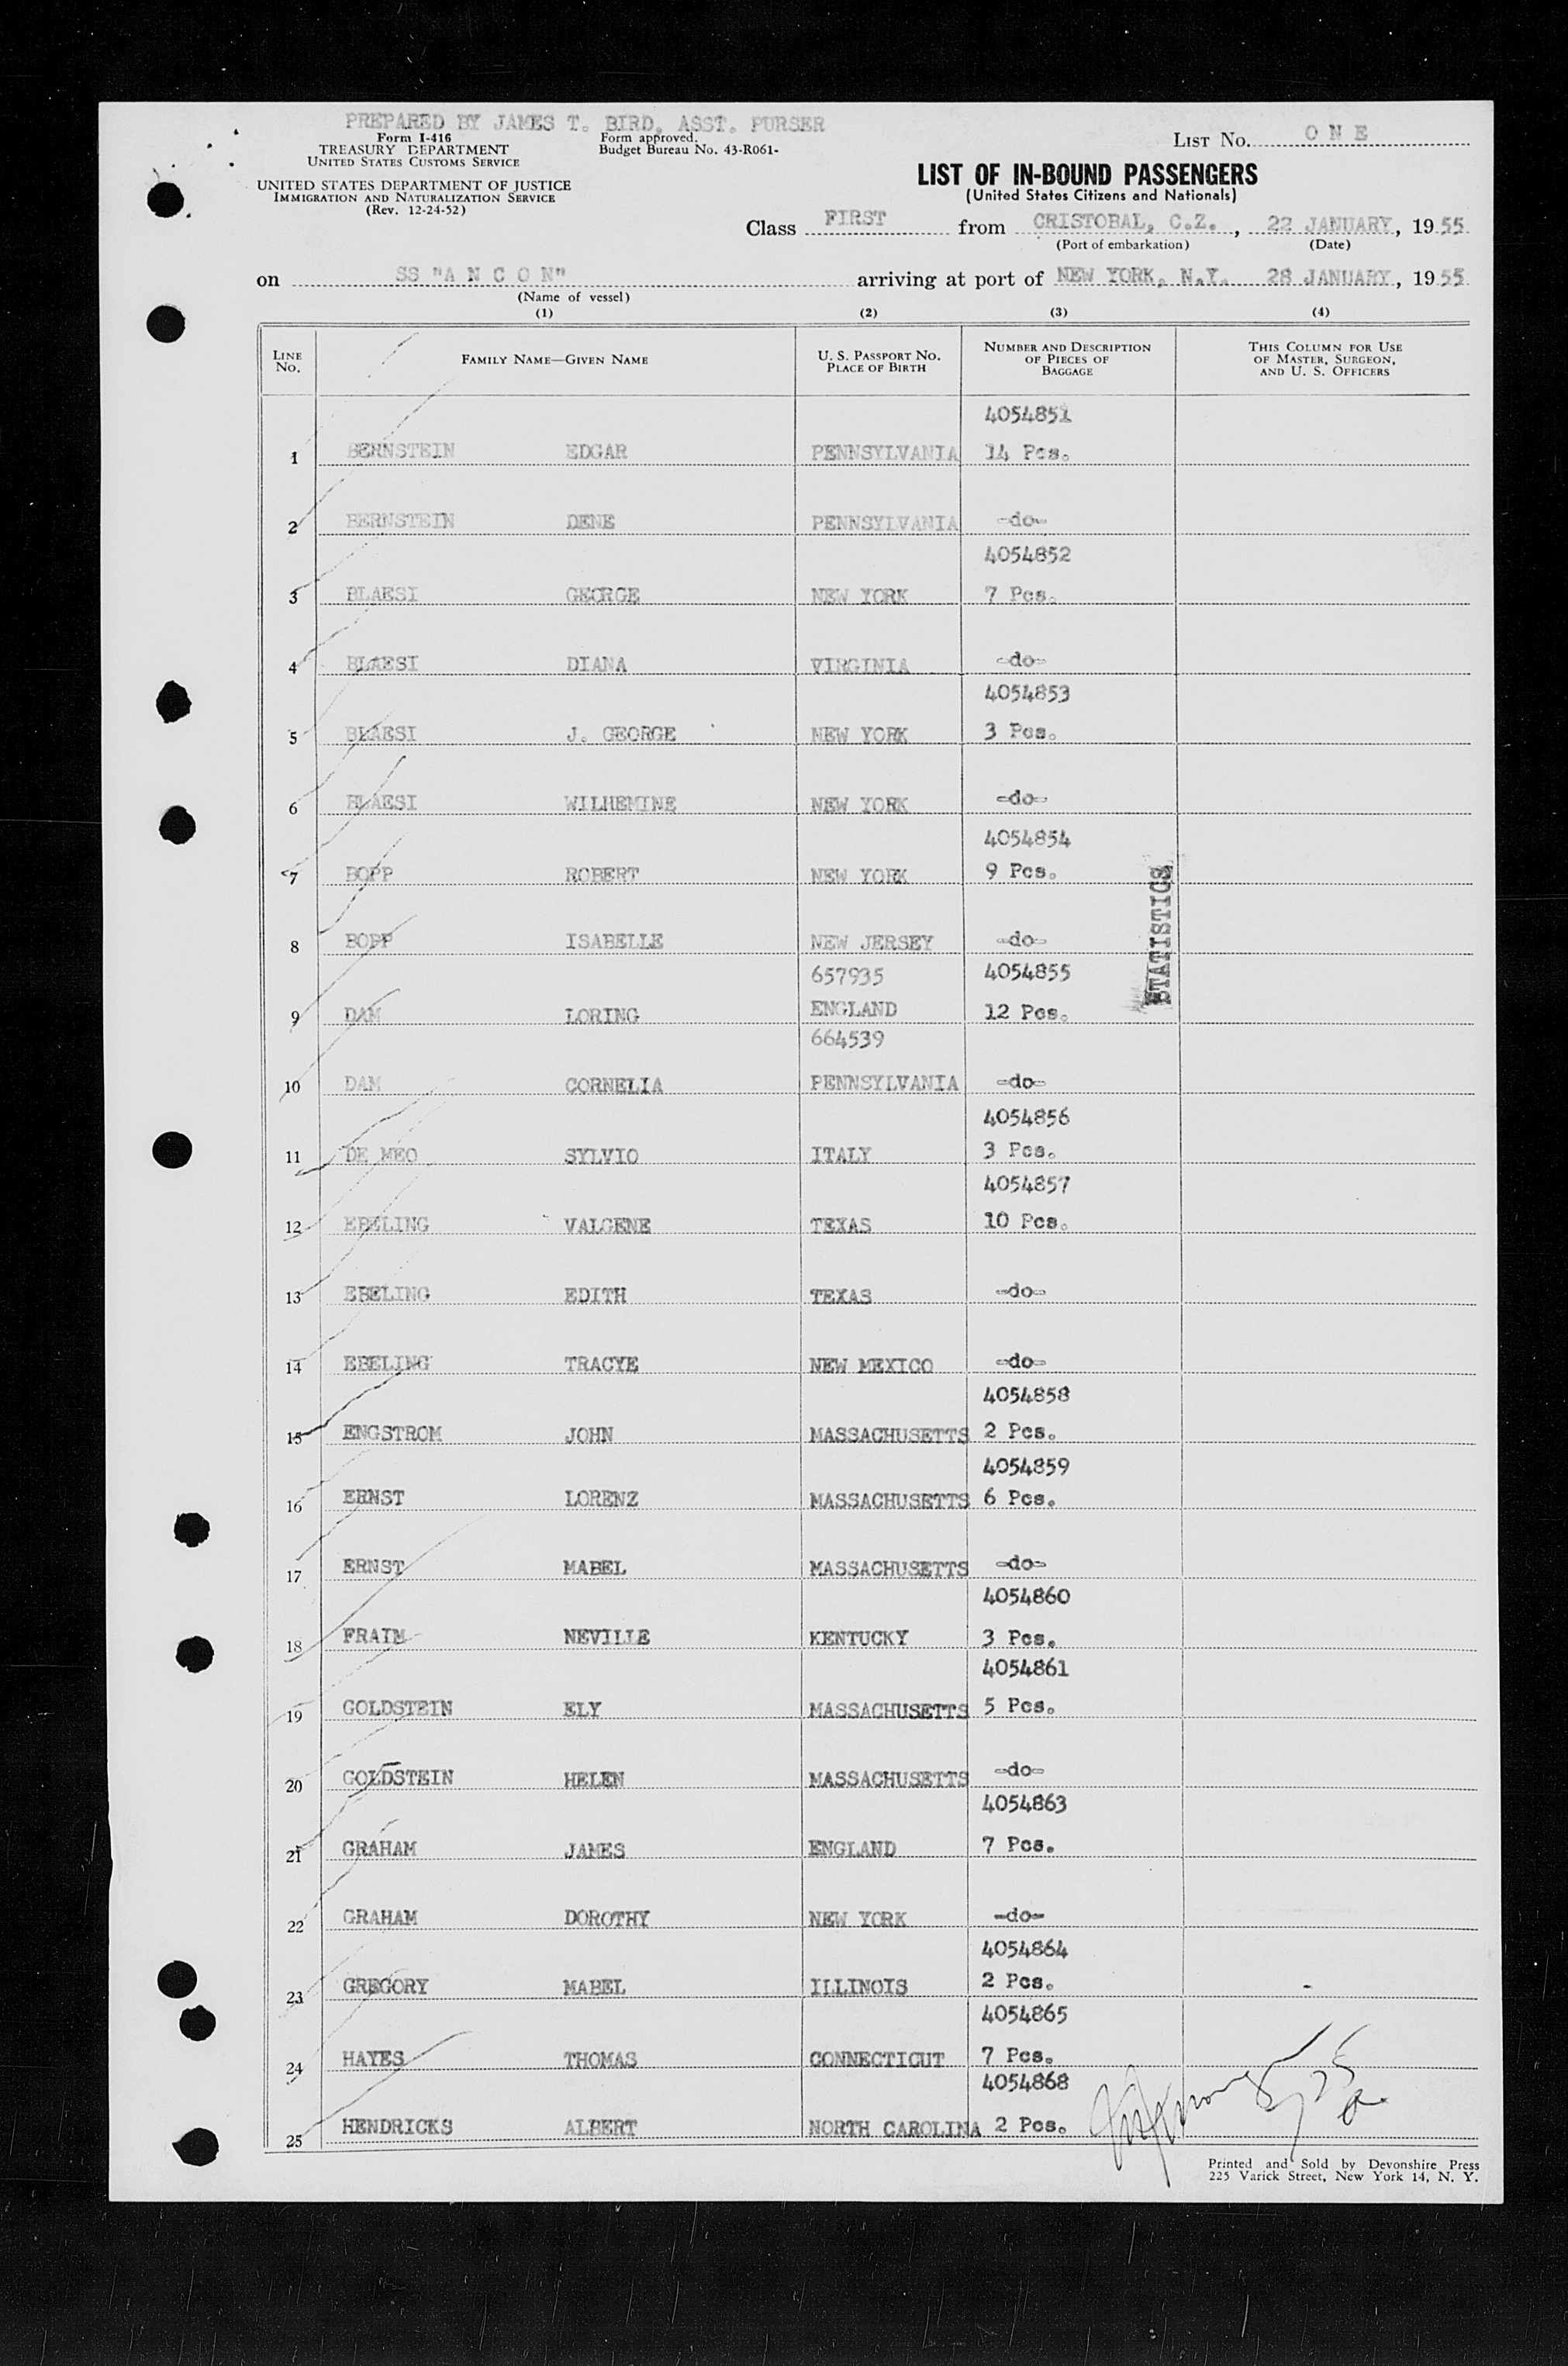 PREPARED BY JAMES T. BIRD, ASST. PURSER
Form I-416
TREASURY DEPARTMENT
UNITED STATES CUSTOMS SERVICE
Form approved.
Budget Bureau No. 43-R061-
LIST No. O N E
UNITED STATES DEPARTMENT OF JUSTICE
IMMIGRATION AND NATURALIZATION SERVICE
(Rev. 12-24-52)
LIST OF IN-BOUND PASSENGERS
(United States Citizens and Nationals)
Class FIRST from CRISTOBAL, C.Z., 22 JANUARY, 1955
(Port of embarkation) (Date)
on SS "A N C O N" arriving at port of NEW YORK, N.Y. 28 JANUARY, 1955
(Name of vessel)
(1) (2) (3) (4)
LINE No. FAMILY NAME—GIVEN NAME U. S. PASSPORT No. PLACE OF BIRTH NUMBER AND DESCRIPTION OF PIECES OF BAGGAGE THIS COLUMN FOR USE OF MASTER, SURGEON, AND U. S. OFFICERS
4054851
1 BERNSTEIN EDGAR PENNSYLVANIA 14 Pcs.
2 BERNSTEIN DENE PENNSYLVANIA -do-
4054852
3 BLAESI GEORGE NEW YORK 7 Pcs.
4 BLAESI DIANA VIRGINIA -do-
4054853
5 BLAESI J. GEORGE NEW YORK 3 Pcs.
6 BLAESI WILHEMINE NEW YORK -do-
4054854
7 BOPP ROBERT NEW YORK 9 Pcs.
8 BOPP ISABELLE NEW JERSEY -do-
STATISTICS
657935 4054855
9 DAM LORING ENGLAND 12 Pcs.
664539
10 DAM CORNELIA PENNSYLVANIA -do-
4054856
11 DE MEO SYLVIO ITALY 3 Pcs.
4054857
12 EBELING VALGENE TEXAS 10 Pcs.
13 EBELING EDITH TEXAS -do-
14 EBELING TRACYE NEW MEXICO -do-
4054858
15 ENGSTROM JOHN MASSACHUSETTS 2 Pcs.
4054859
16 ERNST LORENZ MASSACHUSETTS 6 Pcs.
17 ERNST MABEL MASSACHUSETTS -do-
4054860
18 FRAIM NEVILLE KENTUCKY 3 Pcs.
4054861
19 GOLDSTEIN ELY MASSACHUSETTS 5 Pcs.
20 GOLDSTEIN HELEN MASSACHUSETTS -do-
4054863
21 GRAHAM JAMES ENGLAND 7 Pcs.
22 GRAHAM DOROTHY NEW YORK -do-
4054864
23 GREGORY MABEL ILLINOIS 2 Pcs.
4054865
24 HAYES THOMAS CONNECTICUT 7 Pcs.
4054868
25 HENDRICKS ALBERT NORTH CAROLINA 2 Pcs.
Printed and Sold by Devonshire Press
225 Varick Street, New York 14, N. Y.